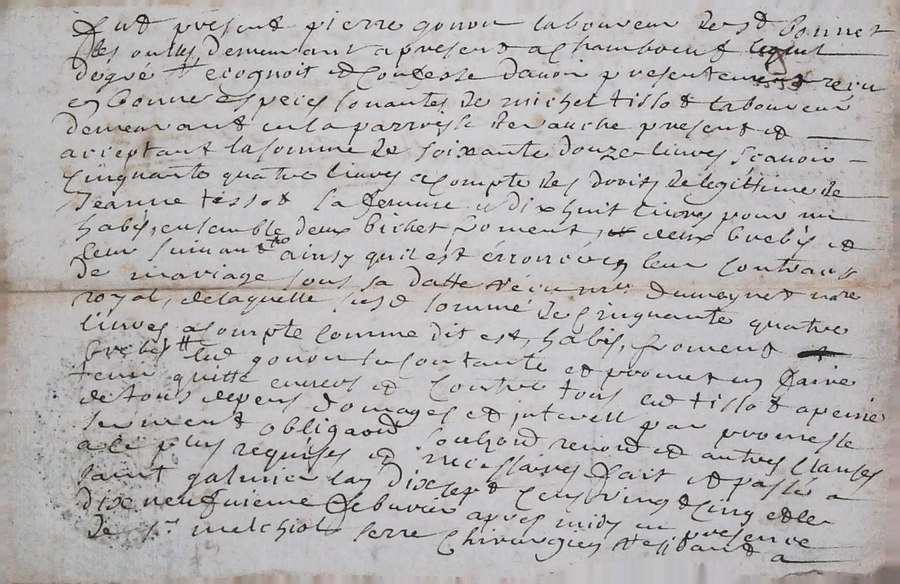 fut present pierre gonon laboureur de st bonnet
les oulles demeurant a present a Chambœuf lequel
de gré recognoit et confesse davoir presentement receu
en bonnes especes sonantes de michel tissot laboureur
demeurant en la parroisse de present et
acceptant la somme de soixante douze livres scavoir
cinquante quatre livres a compte des droits de legittime de
Jeanne tissot sa femme et dix huit livres pour
habis, ensemble deux bichet froment, deux brebis et
leur suivant ainsy quil est enoncé en leur contract
de mariage sous sa datte receu me Dumaynet nore
royal, de laquelle susd somme de cinquante quatre
livres a compte comme dit est, habis, froment
brebis led gonon se contante et promet en faire
tenir quitte envers et contre tous led tissot a peine
de tous depens domages et interest par promesse
serment obligaon souhon renon et autres clauses
a ce plus requises et necessaires fait et passé a
saint galmier lan dix sept cens vingt cinq et le
dixneufvieme febvrier apres midy en presence
de sr melchiol serre chirurgien a